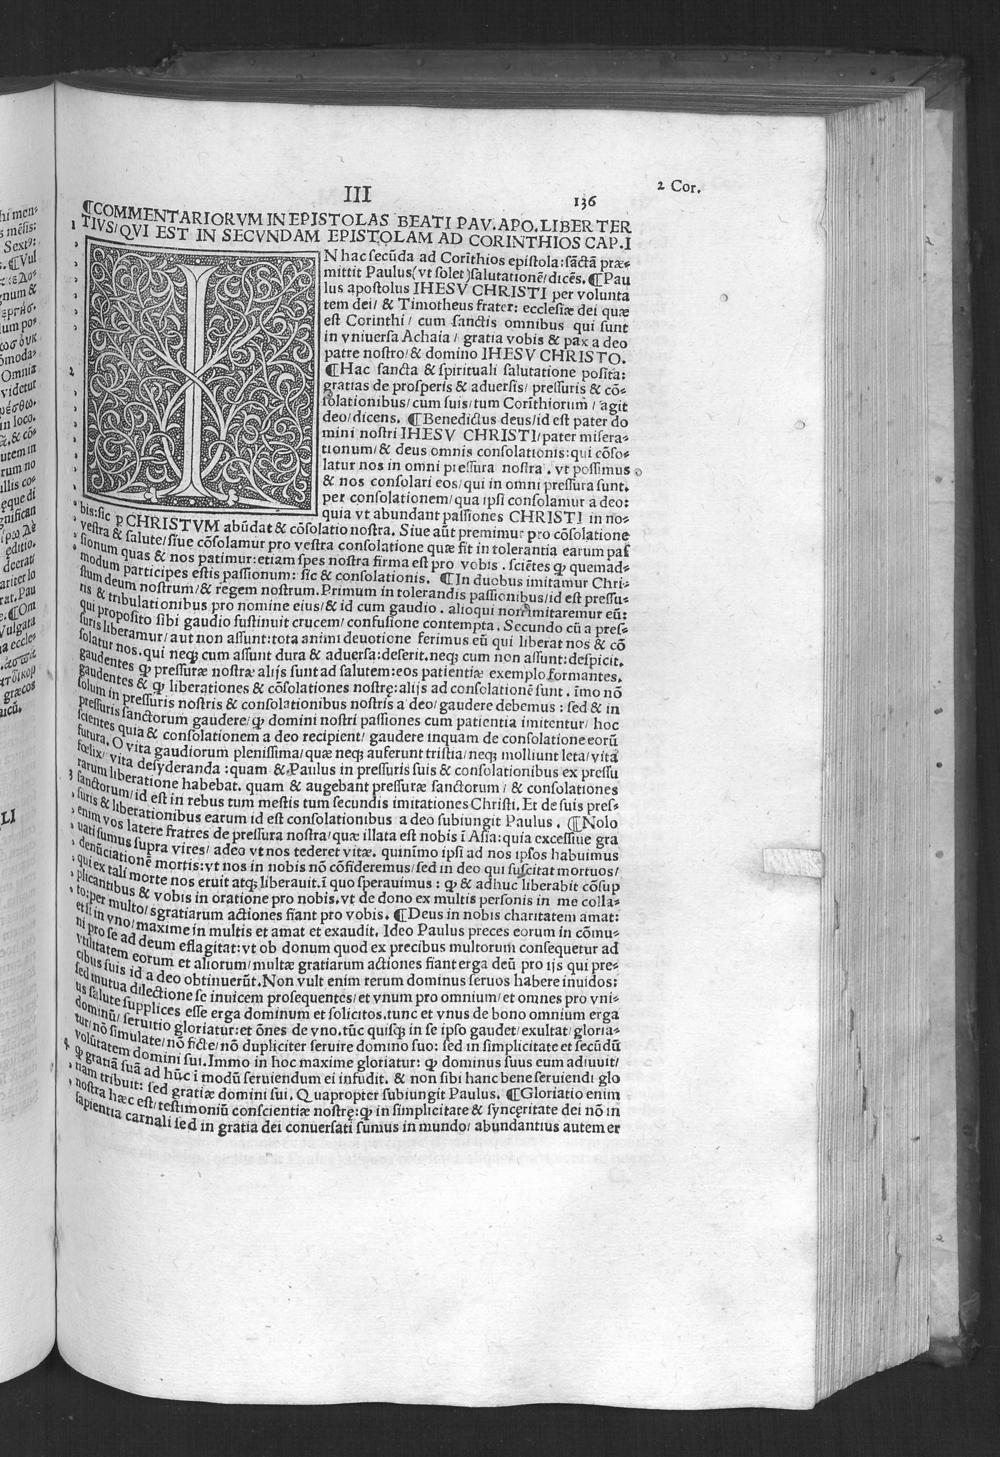 III
136
2 Cor.
¶COMMENTARIORVM IN EPISTOLAS BEATI PAV. APO. LIBER TER
1 TIVS/QVI EST IN SECVNDAM EPISTOLAM AD CORINTHIOS CAP.I
IN hac secūda ad Corīthios epistola: sāctā præ⸗
mittit Paulus(vt solet)salutationē/dicēs. ¶Pau
lus apostolus IHESV CHRISTI per volunta
tem dei/ & Timotheus frater: ecclesiæ dei quæ
est Corinthi/ cum sanctis omnibus qui sunt
in vniuersa Achaia/ gratia vobis & pax a deo
patre nostro/& domino IHESV CHRISTO.
2 ¶Hac sancta & spirituali salutatione posita:
gratias de prosperis & aduersis/ pressuris & cō⸗
solationibus/cum suis/tum Corīthiorum/ agit
deo/dicens. ¶Benedictus deus/id est pater do
mini nostri IHESV CHRISTI/pater misera⸗
tionum/& deus omnis consolationis:qui cōso⸗
latur nos in omni pressura nostra. vt possimus
& nos consolari eos/qui in omni pressura sunt.
per consolationem/qua ipsi consolamur a deo:
quia vt abundant passiones CHRISTI in no⸗
bis:sic ꝑ CHRISTVM abūdat & cōsolatio nostra. Siue aūt premimur pro cōsolatione
vestra & salute/siue cōsolamur pro vestra consolatione quæ fit in tolerantia earum pas
sionum quas & nos patimur:etiam spes nostra firma est pro vobis. sciētes ꝙ quemad⸗
modum participes estis passionum: sic & consolationis. ¶In duobus imitamur Chri⸗
stum deum nostrum/& regem nostrum. Primum in tolerandis passionibus/id est pressu⸗
ris & tribulationibus pro nomine eius/& id cum gaudio. alioqui non imitaremur eū:
qui proposito sibi gaudio sustinuit crucem/ confusione contempta. Secundo cū a pres⸗
suris liberamur/aut non assunt:tota animi deuotione ferimus eū qui liberat nos & cō
solatur nos.qui neqꝫ cum assunt dura & aduersa:deserit.neqꝫ cum non assunt:despicit.
gaudentes ꝙ pressuræ nostræ alijs sunt ad salutem:eos patientiæ exemplo formantes.
gaudentes & ꝙ liberationes & cōsolationes nostrę:alijs ad consolationē sunt. īmo nō
solum in pressuris nostris & consolationibus nostris a deo/gaudere debemus: sed & in
pressuris sanctorum gaudere/ꝙ domini nostri passiones cum patientia imitentur/ hoc
scientes quia & consolationem a deo recipient/ gaudere inquam de consolatione eorū
futura. O vita gaudiorum plenissima/quæ neqꝫ auferunt tristia/neqꝫ molliunt leta/vita
fœlix/ vita desyderanda:quam & Paulus in pressuris suis & consolationibus ex pressu
rarum liberatione habebat. quam & augebant pressuræ sanctorum/ & consolationes
3 sanctorum/id est in rebus tum mestis tum secundis imitationes Christi. Et de suis pres⸗
suris & liberationibus earum id est consolationibus a deo subiungit Paulus. ¶Nolo
enim vos latere fratres de pressura nostra/quæ illata est nobis ī Asia:quia excessiue gra
uati sumus supra vires/ adeo vt nos tederet vitæ. quinīmo ipsi ad nos ipsos habuimus
denūciationē mortis:vt nos in nobis nō cōfideremus/sed in deo qui suscitat mortuos/
qui ex tali morte nos eruit atqꝫ liberauit.ī quo sperauimus: ꝙ & adhuc liberabit cōsup
plicantibus & vobis in oratione pro nobis.vt de dono ex multis personis in me colla⸗
to:per multo/sgratiarum actiones fiant pro vobis. ¶Deus in nobis charitatem amat:
etsi in vno/maxime in multis et amat et exaudit. Ideo Paulus preces eorum in cōmu⸗
ni pro se ad deum eflagitat:vt ob donum quod ex precibus multorum consequetur ad
vtilitatem eorum et aliorum/multæ gratiarum actiones fiant erga deū pro ijs qui pre⸗
cibus suis id a deo obtinuerūt.Non vult enim rerum dominus seruos habere inuidos:
sed mutua dilectione se inuicem prosequentes/et vnum pro omnium/et omnes pro vni⸗
us salute supplices esse erga dominum et solicitos.tunc et vnus de bono omnium erga
dominū/ seruitio gloriatur:et ōnes de vno.tūc quisqꝫ in se ipso gaudet/exultat/gloria⸗
tur/nō simulate/nō ficte/nō dupliciter seruire domino suo: sed in simplicitate et secūdū
volūtatem domini sui.Immo in hoc maxime gloriatur: ꝙ dominus suus eum adiuuit/
4 ꝙ gratiā suā ad hūc ī modū seruiendum ei infudit. & non sibi hanc bene seruiendi glo
riam tribuit: sed gratiæ domini sui. Quapropter subiungit Paulus. ¶Gloriatio enim
nostra hæc est/testimoniū conscientiæ nostrę:ꝙ in simplicitate & syncęritate dei nō in
sapientia carnali sed in gratia dei conuersati sumus in mundo/ abundantius autem er